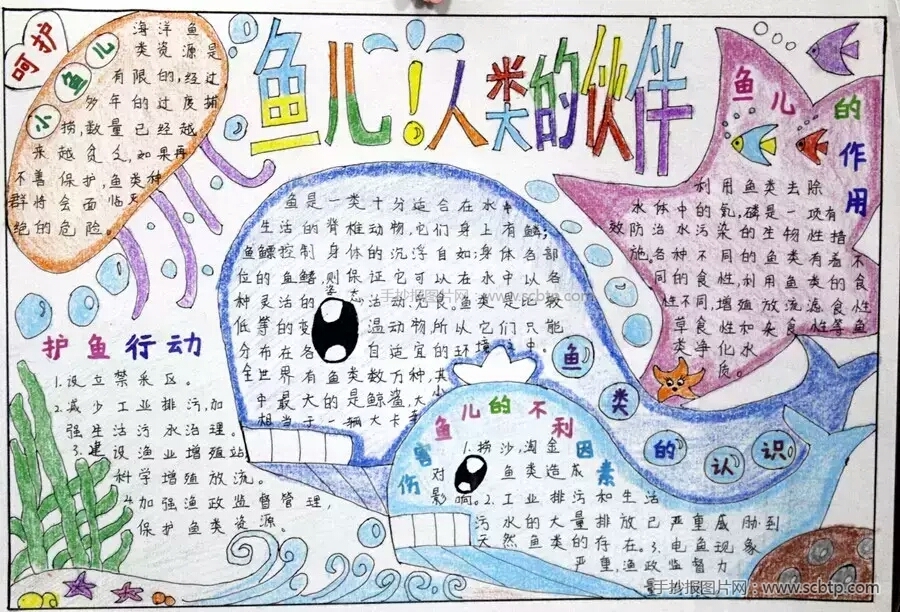 鱼儿!人类的伙伴
呵护
小鱼儿
海洋鱼
类资源是
有限的,经过
多年的过度捕
捞,数量已经越
来越贫乏,如果再
不善保护,鱼类种
群将会面临灭
绝的危险。
护鱼行动
1.设立禁采区。
2.减少工业排污,加
强生活污水治理。
3.建设渔业增殖站,
科学增殖放流。
4.加强渔政监督管理,
保护鱼类资源。
鱼是一类十分适合在水中
生活的脊椎动物,它们身上有鳞;
鱼鳔控制身体的沉浮自如;身体各部
位的鱼鳍,则保证它可以在水中以各
种灵活的姿态活动,无畏。鱼类是比较
低等的变温动物所以它们只能
分布在各自适宜的环境之中。
全世界有鱼类数万种,其
中最大的是鲸鲨,大小
相当于一辆大卡车
鱼类的认识
鱼儿的不利
伤害因素
1.捞沙,淘金
对鱼类造成
影响。2.工业排污和生活
污水的大量排放已严重威胁到
天然鱼类的存在。3.电鱼现象
严重,渔政监督力
量
鱼儿的作用
利用鱼类去除
水体中的氮,磷是一项有
效防治水污染的生物性措
施。各种不同的鱼类有着不
同的食性,利用鱼类的食
性不同增殖放流滤食性
草食性和杂食性等鱼
类净化水
质。
手抄报图片网 www.scbtp.com
手抄报图片网:www.scbtp.com